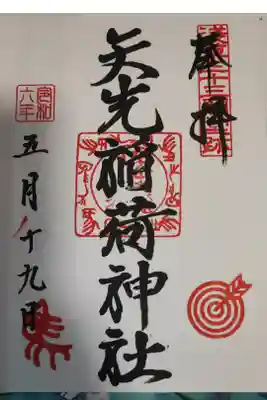 奉拝
矢先稲荷神社
令和六年
五月十九日